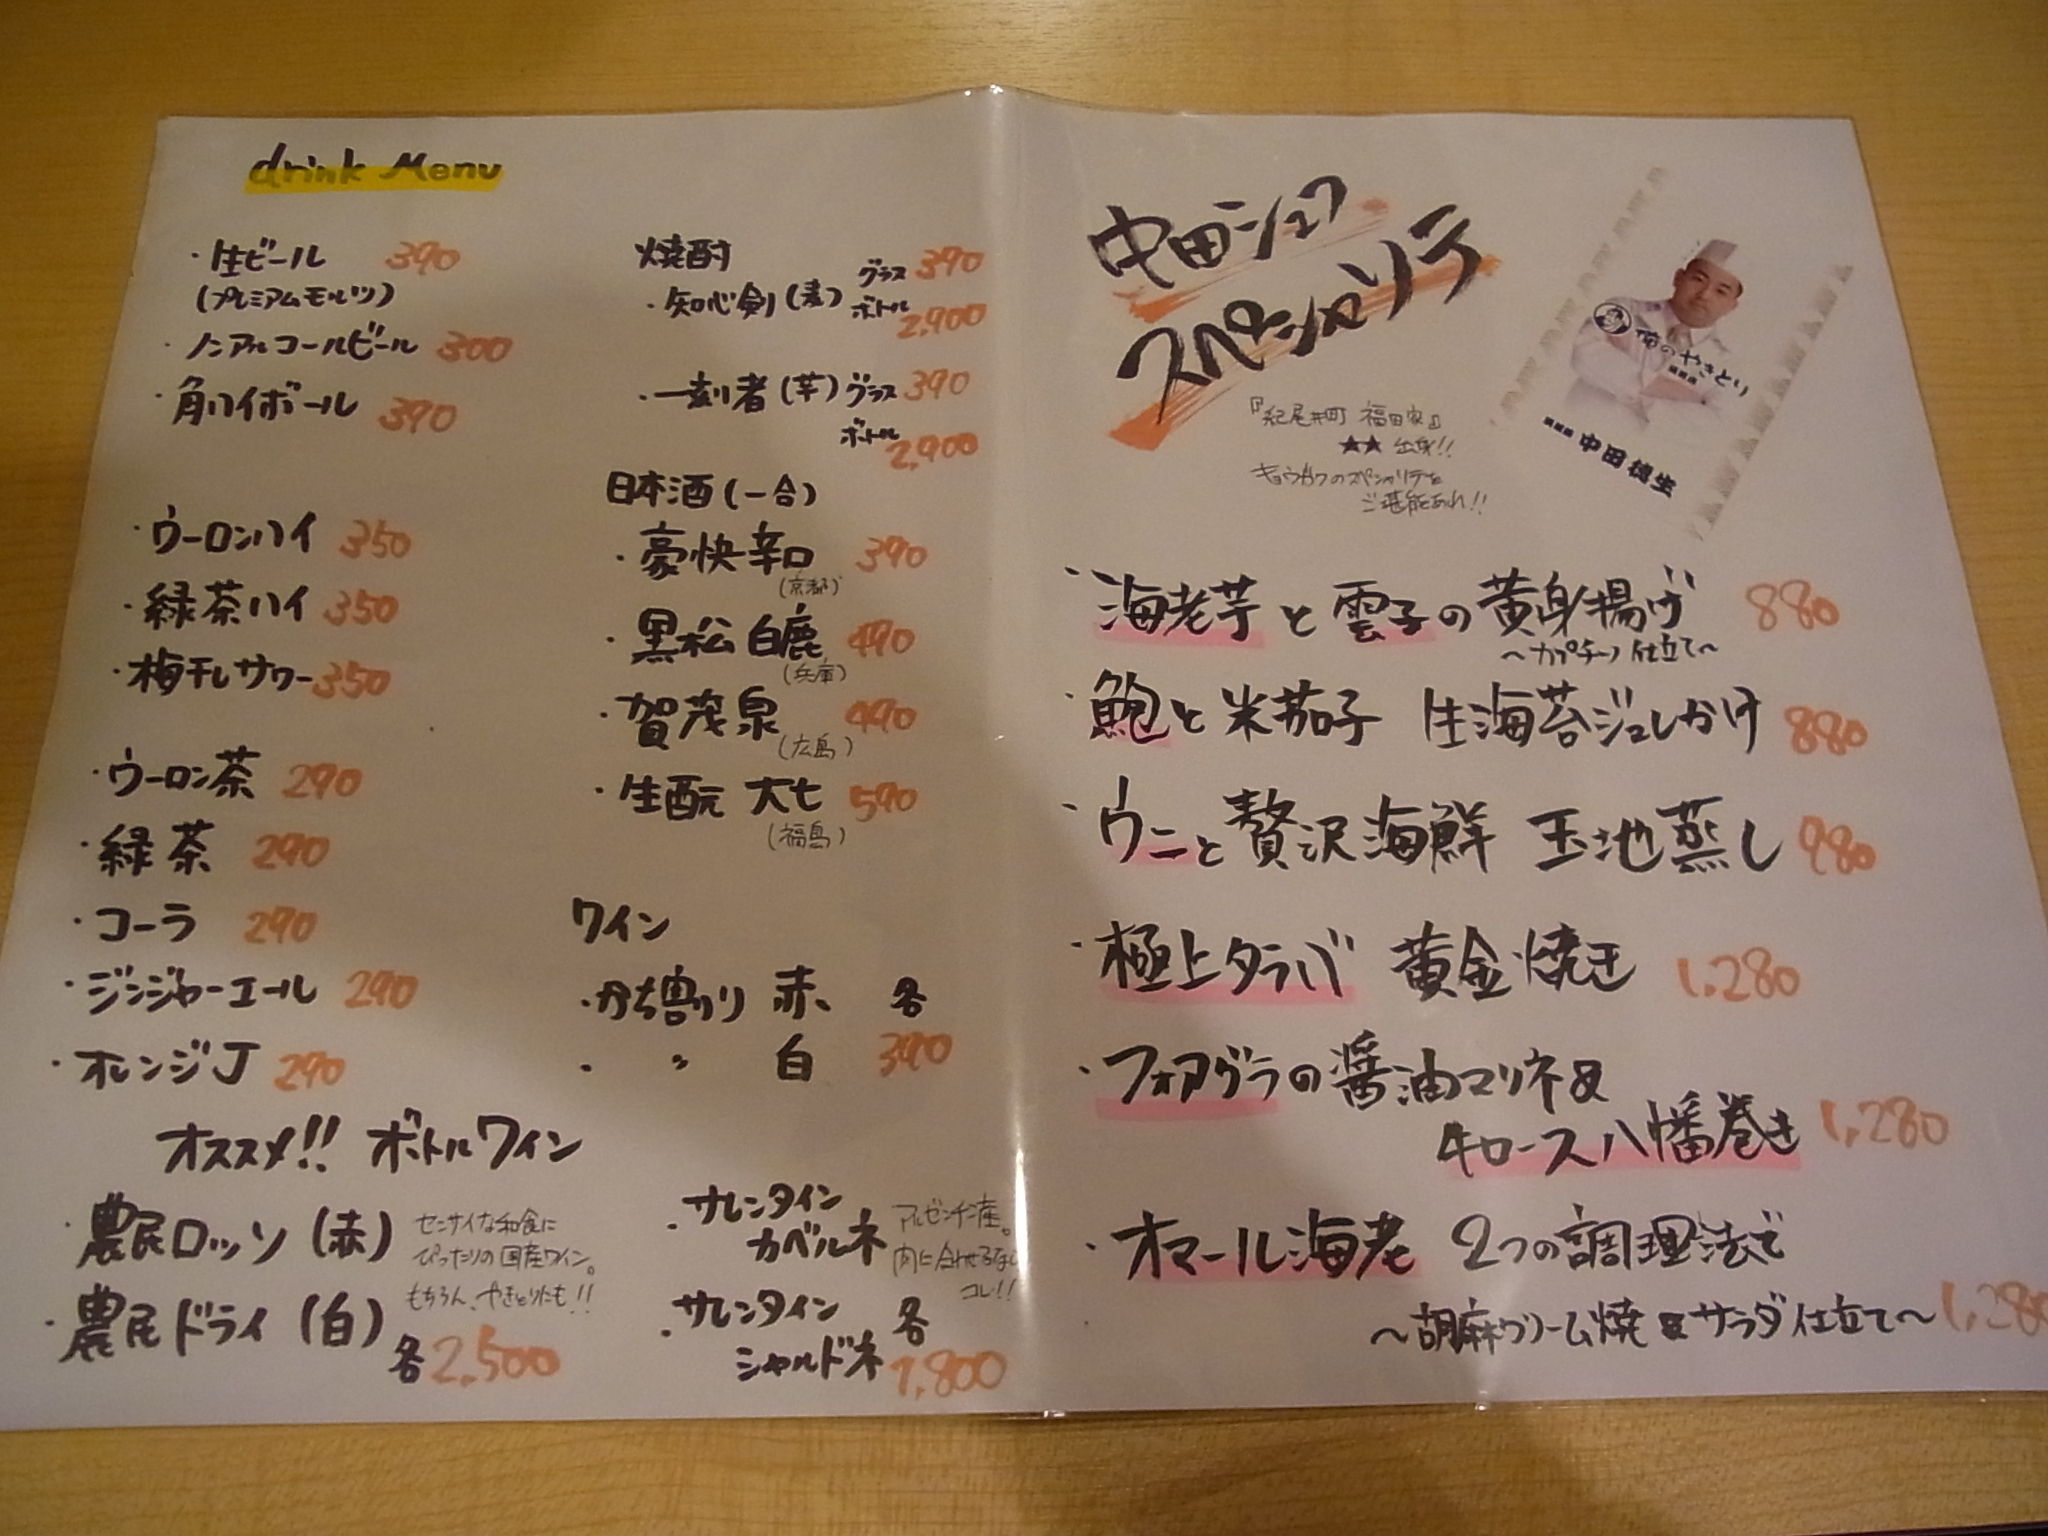 drink Menu
・生ビール 390
(プレミアムモルツ)
・ノンアルコールビール 300
・角ハイボール 390
・ウーロンハイ 350
・緑茶ハイ 350
・梅干しサワー 350
・ウーロン茶 290
・緑茶 290
・コーラ 290
・ジンジャーエール 290
・オレンジJ 290
焼酎
・知心剣(麦) グラス 390
ボトル 2,900
・一刻者(芋) グラス 390
ボトル 2,900
日本酒(一合)
・豪快辛口 390
(京都)
・黒松白鹿 490
(兵庫)
・賀茂泉 490
(広島)
・生酛 大七 590
(福島)
ワイン
・かち割り 赤 各
・ 〃 白 390
オススメ!! ボトルワイン
・農民ロッソ(赤)
・農民ドライ(白)
各2,500
センサイな和食に
ぴったりの国産ワイン。
もちろん、やきとりにも!!
・サレンタイン
カベルネ
・サレンタイン
シャルドネ
各
1,800
アルゼンチン産。
肉に合わせるなら
コレ!!
中田シェフ
スペシャリテ
『紀尾井町 福田家』
★★ 出身!!
キョウガクのスペシャリテを
ご堪能あれ!!
俺のやきとり
中田穂生
・海老芋と雲子の黄身揚げ 880
〜カプチーノ仕立て〜
・鮑と米茄子 生海苔ジュレかけ 880
・ウニと贅沢海鮮 玉地蒸し 980
・極上タラバ 黄金焼き 1,280
・フォアグラの醤油マリネ&
牛ロース八幡巻き 1,280
・オマール海老 2つの調理法で
〜胡麻クリーム焼&サラダ仕立て〜 1,280